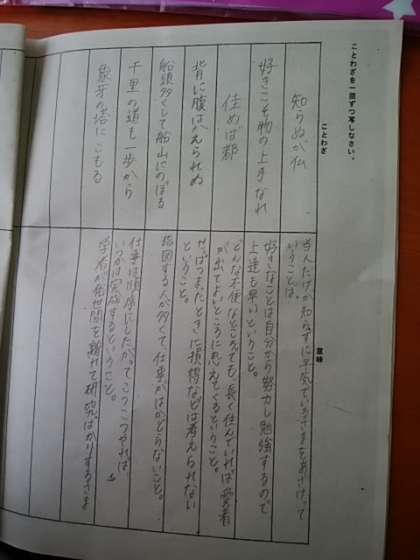 ことわざを一回ずつ写しなさい。
ことわざ
意味
知らぬが仏
当人だけが知らずに平気でいるさまをあざけって
いうことば。
好きこそ物の上手なれ
好きなことは自分から努力し勉強するので
上達も早いということ。
住めば都
どんな不便なところでも、長く住んでいれば愛着
が出てよいところに思えてくるということ。
背に腹はかえられぬ
せっぱつまったときに損得などは考えられない
ということ。
船頭多くして船山にのぼる
指図する人が多くて、仕事がはかどらないこと。
千里の道も一歩から
仕事は順序にしたがってこつこつやれば、
いつかは完成するということ。
象牙の塔にこもる
学者が俗世間を離れて研究ばかりするさま